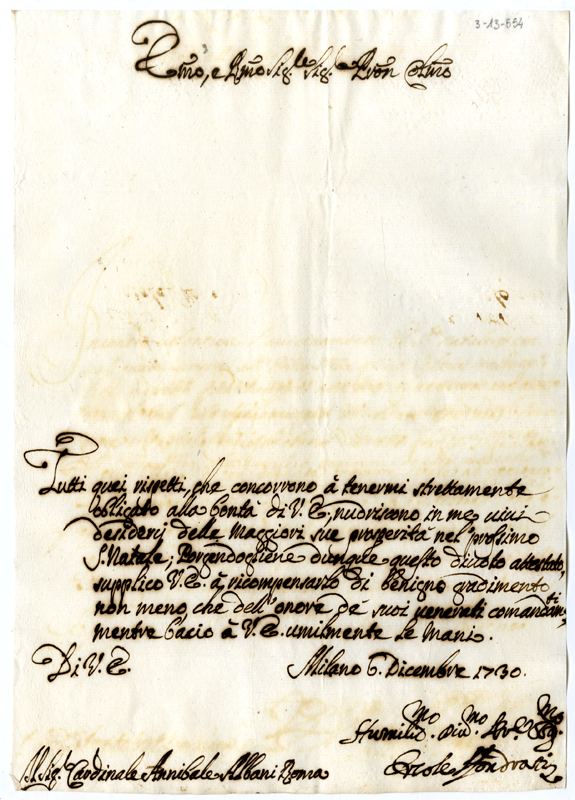 3-13-554
Em̃o, e Rm̃o Sig.re Sig.re Pron Colm̃o
Tutti quei rispetti, che concorrono à tenermi strettamente
obligato alla bontà di V. E., nutriscono in me vivi
desiderj delle maggiori sue prosperità nel prossimo
S. Natale; Porgendogliene dunque questo divoto attestato,
supplico V. E. à ricompensarlo di benigno gradimento
non meno, che dell'onore de' suoi venerati comandam.ti
mentre bacio à V. E. umilmente le mani.
Di V. E. Milano 6. Dicembre 1730.
Humiliss.mo Div.mo Ser.re Obg.mo
Al Sig.r Cardinale Annibale Albani Roma Ercole